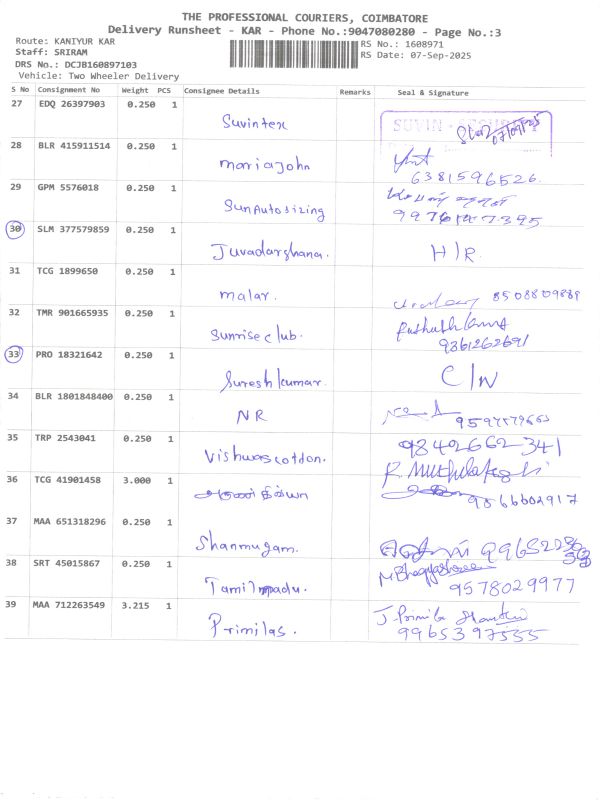 THE PROFESSIONAL COURIERS, COIMBATORE
Delivery Runsheet - KAR - Phone No.:9047080280 - Page No.:3
Route: KANIYUR KAR
RS No.: 1608971
Staff: SRIRAM
RS Date: 07-Sep-2025
DRS No.: DCJB160897103
Vehicle: Two Wheeler Delivery
S No Consignment No Weight PCS Consignee Details Remarks Seal & Signature
27 EDQ 26397903 0.250 1 Suvintex SUVIN 07/09/25
28 BLR 415911514 0.250 1 mariajohn
6381596526.
29 GPM 5576018 0.250 1 SunAutosizing
30 SLM 377579859 0.250 1 Juvadarshana. H/R.
31 TCG 1899650 0.250 1 malar. 8508809889
32 TMR 901665935 0.250 1 Sunrise club.
9361262691
33 PRO 18321642 0.250 1 Sureshkumar. C/W
34 BLR 1801848400 0.250 1 NR
35 TRP 2543041 0.250 1 Vishwascotton. 9842662341
36 TCG 41901458 3.000 1 9566602917
37 MAA 651318296 0.250 1 Shanmugam.
38 SRT 45015867 0.250 1 Tamilnadu.
9578029977
39 MAA 712263549 3.215 1 Primilas. J. Primila
9965397555